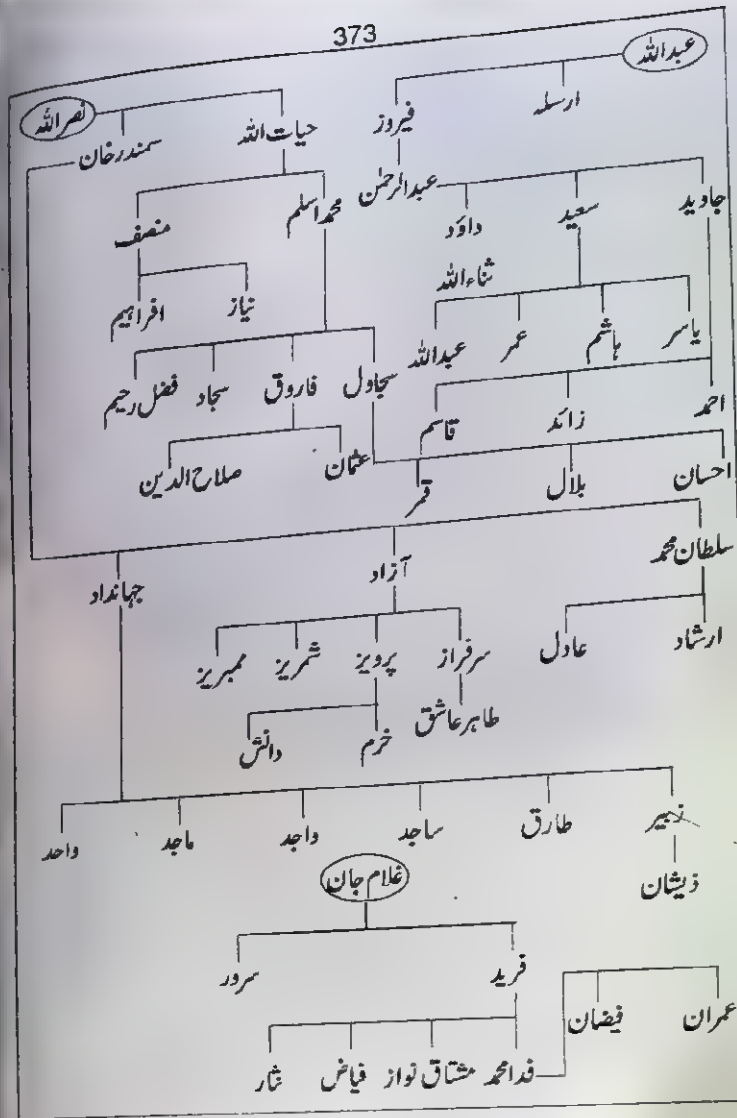 373
عبداللہ
نصراللہ
ارسلہ
فیروز
حیات اللہ
سمندرخان
جاوید
سعید
داؤد
عبدالرحمٰن
محمداسلم
منصف
ثناءاللہ
نیاز
افراہیم
یاسر
ہاشم
عمر
عبداللہ
سجاول
فاروق
سجاد
فضل رحیم
احمد
زائد
قاسم
عثمان
صلاح الدین
احسان
بلال
قمر
سلطان محمد
آزاد
جہانداد
ارشاد
عادل
سرفراز
پرویز
شمریز
ممبریز
طاہرعاشق
خرم
دانش
زبیر
طارق
ساجد
واجد
ماجد
واحد
ذیشان
غلام جان
فرید
سرور
عمران
فیضان
فدامحمد
مشتاق نواز
فیاض
نثار